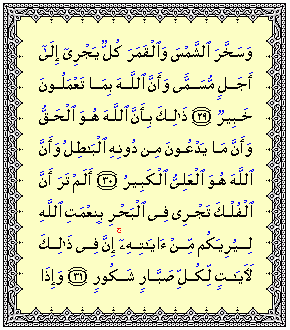 وَسَخَّرَ ٱلشَّمْسَ وَٱلْقَمَرَ كُلٌّ يَجْرِىٓ إِلَىٰٓ
أَجَلٍ مُّسَمًّى وَأَنَّ ٱللَّهَ بِمَا تَعْمَلُونَ
خَبِيرٌ ٢٩ ذَٰلِكَ بِأَنَّ ٱللَّهَ هُوَ ٱلْحَقُّ
وَأَنَّ مَا يَدْعُونَ مِن دُونِهِ ٱلْبَٰطِلُ وَأَنَّ
ٱللَّهَ هُوَ ٱلْعَلِىُّ ٱلْكَبِيرُ ٣٠ أَلَمْ تَرَ أَنَّ
ٱلْفُلْكَ تَجْرِى فِى ٱلْبَحْرِ بِنِعْمَتِ ٱللَّهِ
لِيُرِيَكُم مِّنْ ءَايَٰتِهِۦٓ ۚ إِنَّ فِى ذَٰلِكَ
لَءَايَٰتٍ لِّكُلِّ صَبَّارٍ شَكُورٍ ٣١ وَإِذَا